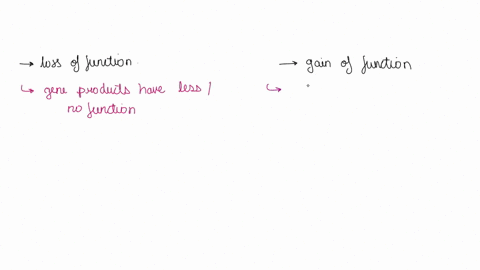 → loss of function
↳ gene products have less /
no function
→ gain of function
↳